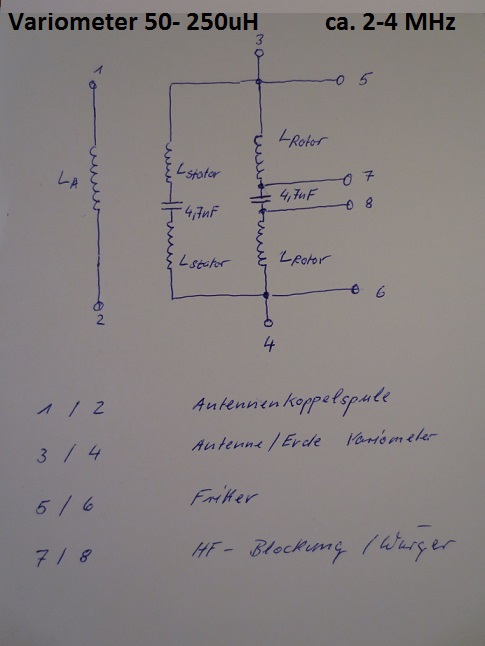 Variometer 50- 250uH ca. 2-4 MHz
3
1
5
L Rotor
L Stator
7
LA
4,7nF
4,7nF
8
L Stator
L Rotor
6
2
4
1 / 2 Antennenkoppelspule
3 / 4 Antenne/Erde Variometer
5 / 6 Fritter
7 / 8 HF - Blockung / Würger